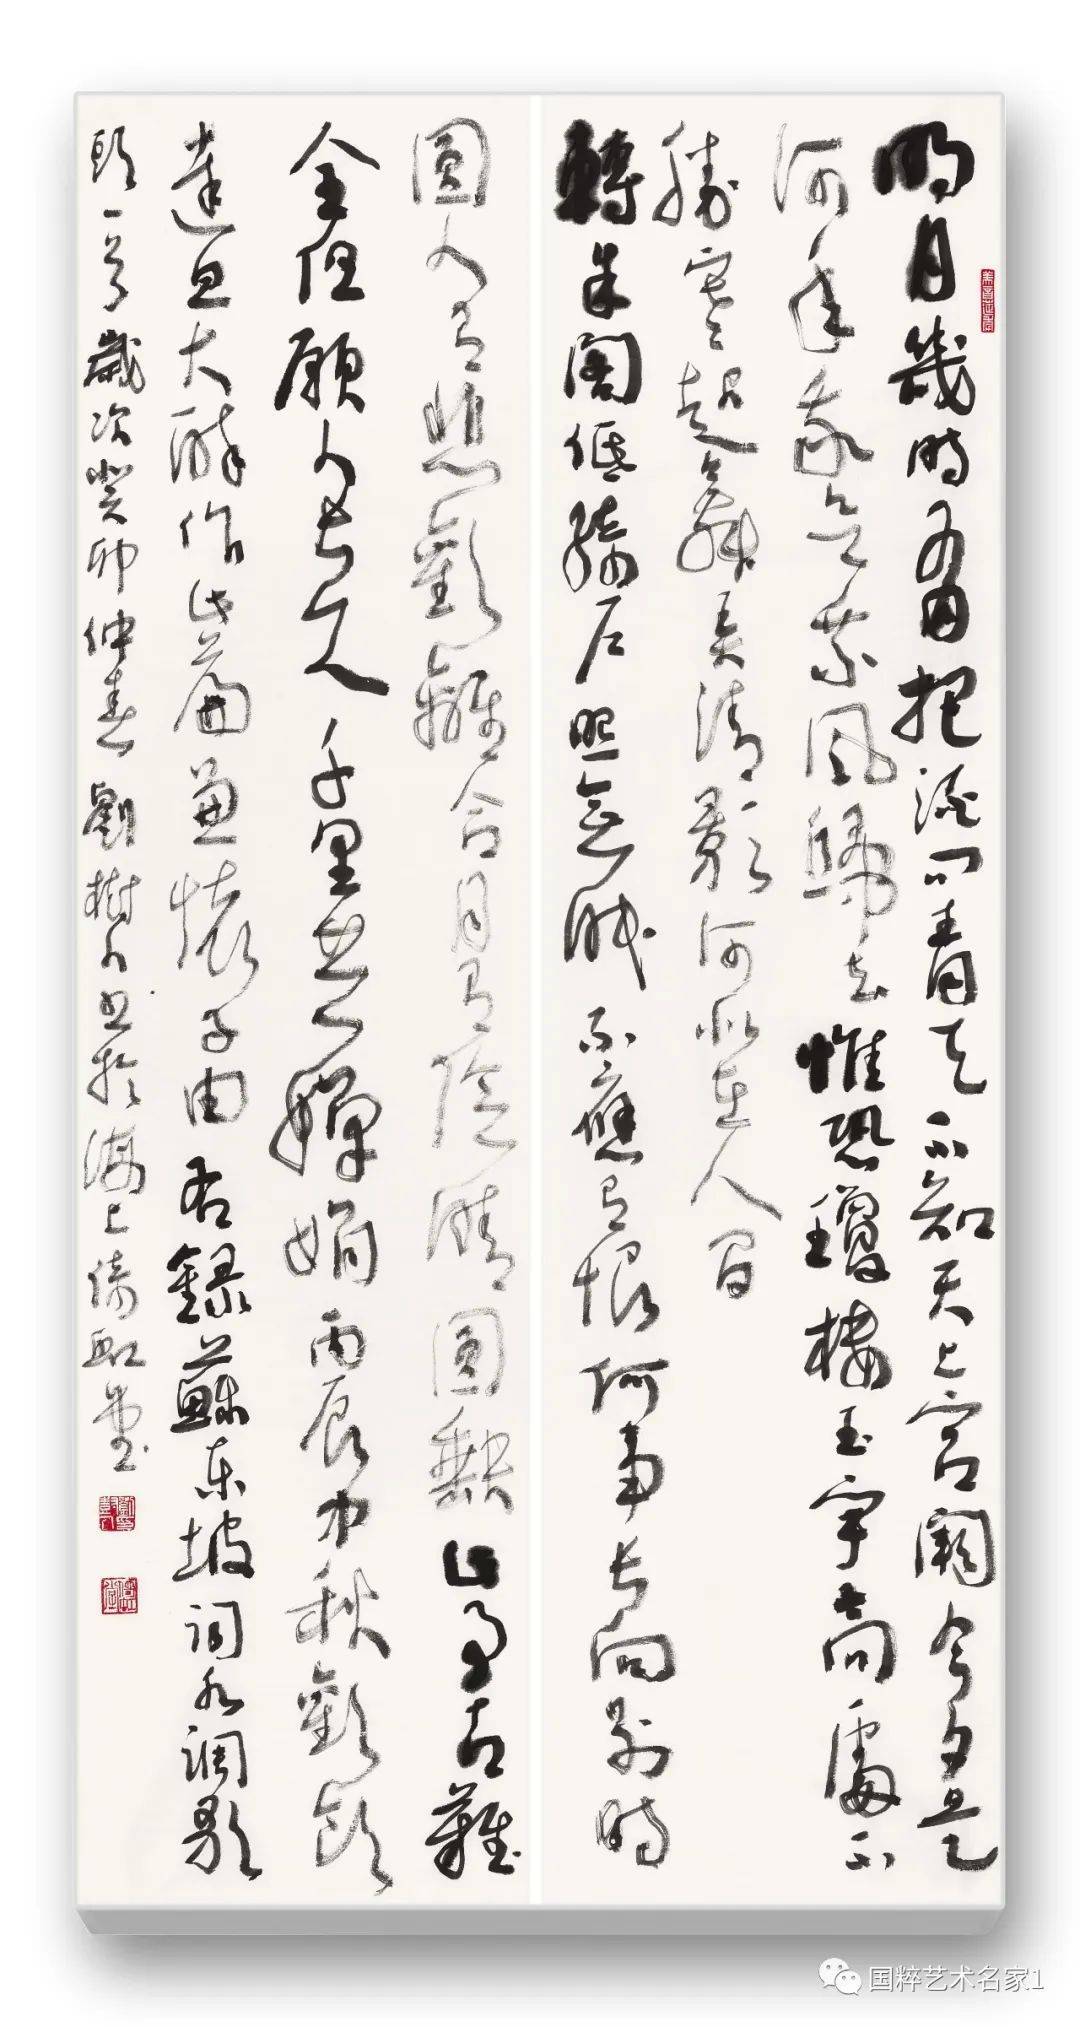 明月幾時有把酒問青天不知天上宮闕今夕是
何年我欲乘風歸去惟恐瓊樓玉宇高處不
勝寒起舞弄清影何似在人間
轉朱閣低綺戶照無眠不應有恨何事長向別時
圓人有悲歡離合月有陰晴圓缺此事古難
全但願人長久千里共嬋娟丙辰中秋歡飲
達旦大醉作此篇兼懷子由右錄蘇東坡詞水調歌
頭一首歲次癸卯仲春劉樹人書於海上倚虹堂
国粹艺术名家1